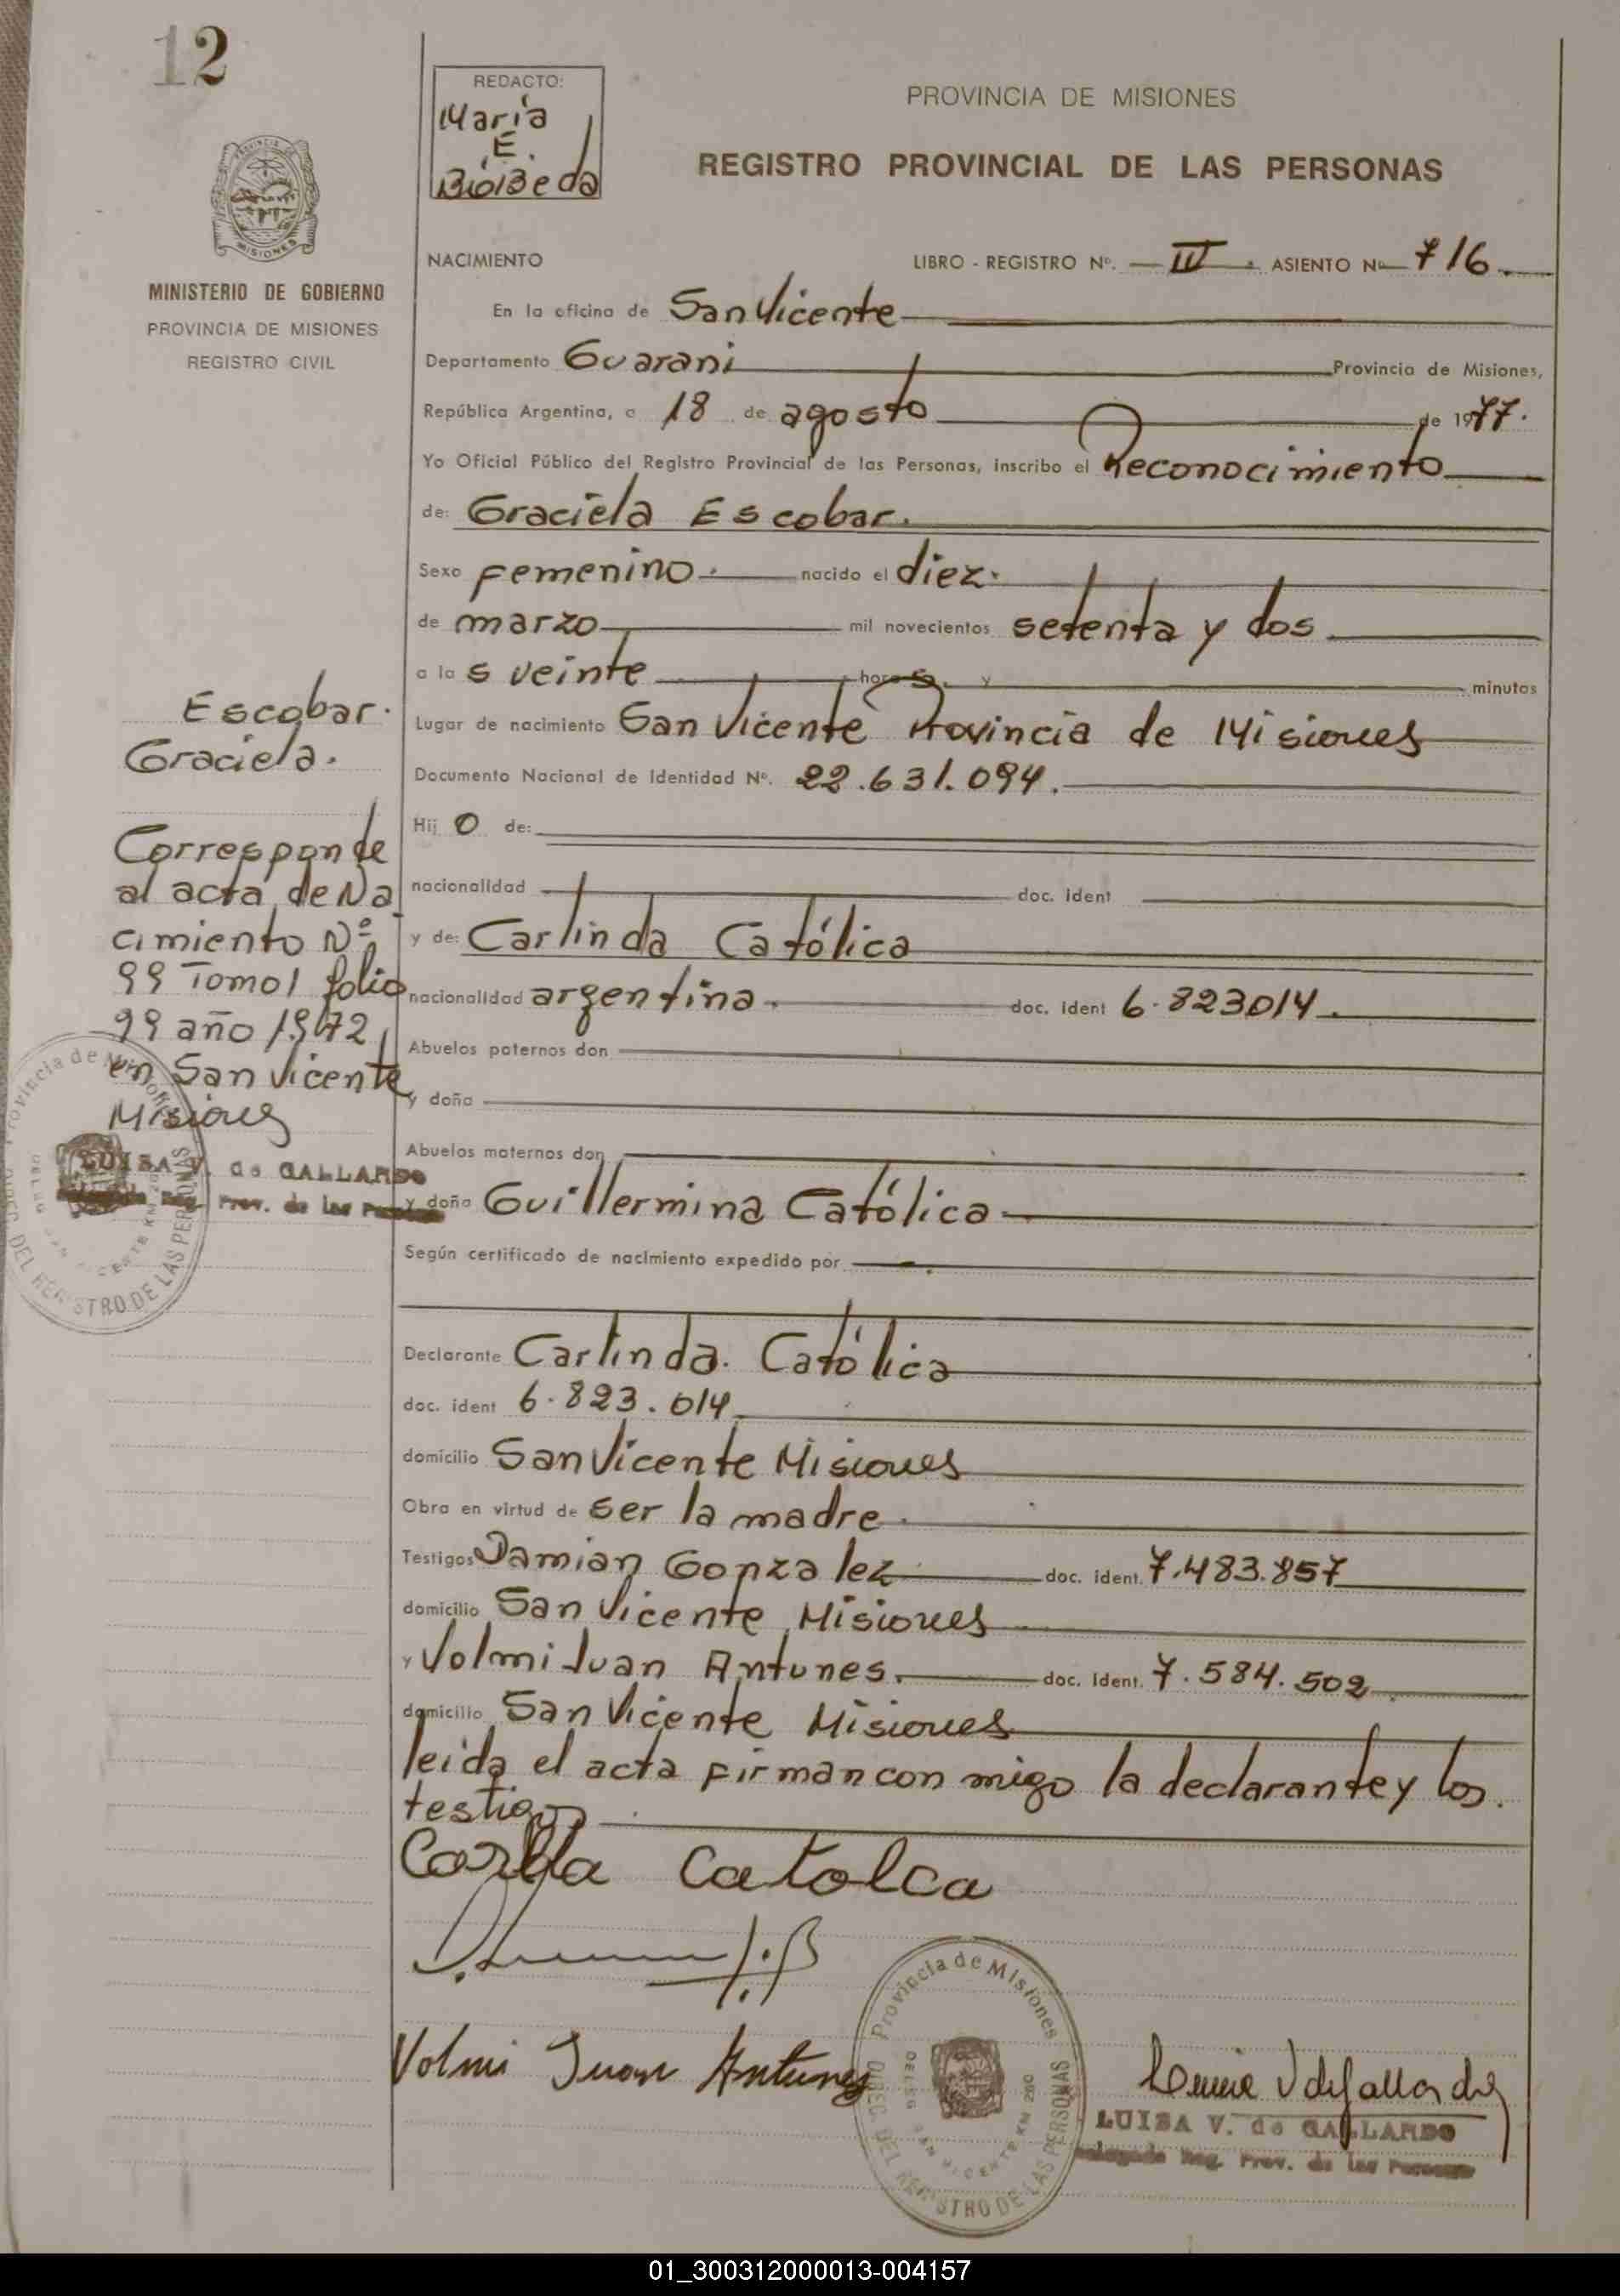 12
REDACTO:
Maria
E.
PROVINCIA DE MISIONES
REGISTRO PROVINCIAL DE LAS PERSONAS
MISIONES
MINISTERIO DE GOBIERNO
PROVINCIA DE MISIONES
REGISTRO CIVIL
NACIMIENTO LIBRO - REGISTRO Nº. IV. ASIENTO Nº 716.
En la oficina de San Vicente
Departamento Guarani Provincia de Misiones,
República Argentina, a 18 de agosto de 1977.
Yo Oficial Público del Registro Provincial de las Personas, inscribo el Reconocimiento
de: Graciela Escobar.
Sexo femenino. nacido el diez.
de marzo mil novecientos setenta y dos
a la s veinte hora s. y minutos
Lugar de nacimiento San Vicente Provincia de Misiones
Documento Nacional de Identidad Nº. 22.631.094.
Hij o de:
nacionalidad doc. ident
y de: Carlinda Católica
nacionalidad argentina. doc. ident 6.823014.
Abuelos paternos don
y doña
Abuelos maternos don
y doña Guillermina Católica
Según certificado de nacimiento expedido por
Declarante Carlinda. Católica
doc. ident 6.823.014
domicilio San Vicente Misiones
Obra en virtud de ser la madre.
Testigos Damian Gonzalez doc. ident. 7.483.857
domicilio San Vicente Misiones
y Volmi Juan Antunes. doc. ident. 7.584.502
domicilio San Vicente Misiones
leida el acta firman con migo la declarante y los.
testigos
Catolca
Volmi Juan Antunes
Provincia de Misiones
DIREC. DEL REGISTRO DE LAS PERSONAS
DELEG. SAN VICENTE KM 260
LUISA V. de GALLARDO
Delegada Reg. Prov. de las Personas
Escobar.
Graciela.
Corresponde
al acta de Na
cimiento Nº
99 Tomo 1 folio
99 año 1972
en San Vicente
Misiones
Provincia de Misiones
DIREC. DEL REGISTRO DE LAS PERSONAS
DELEG. SAN VICENTE KM 260
LUISA V. de GALLARDO
Delegada Reg. Prov. de las Personas
01_300312000013-004157